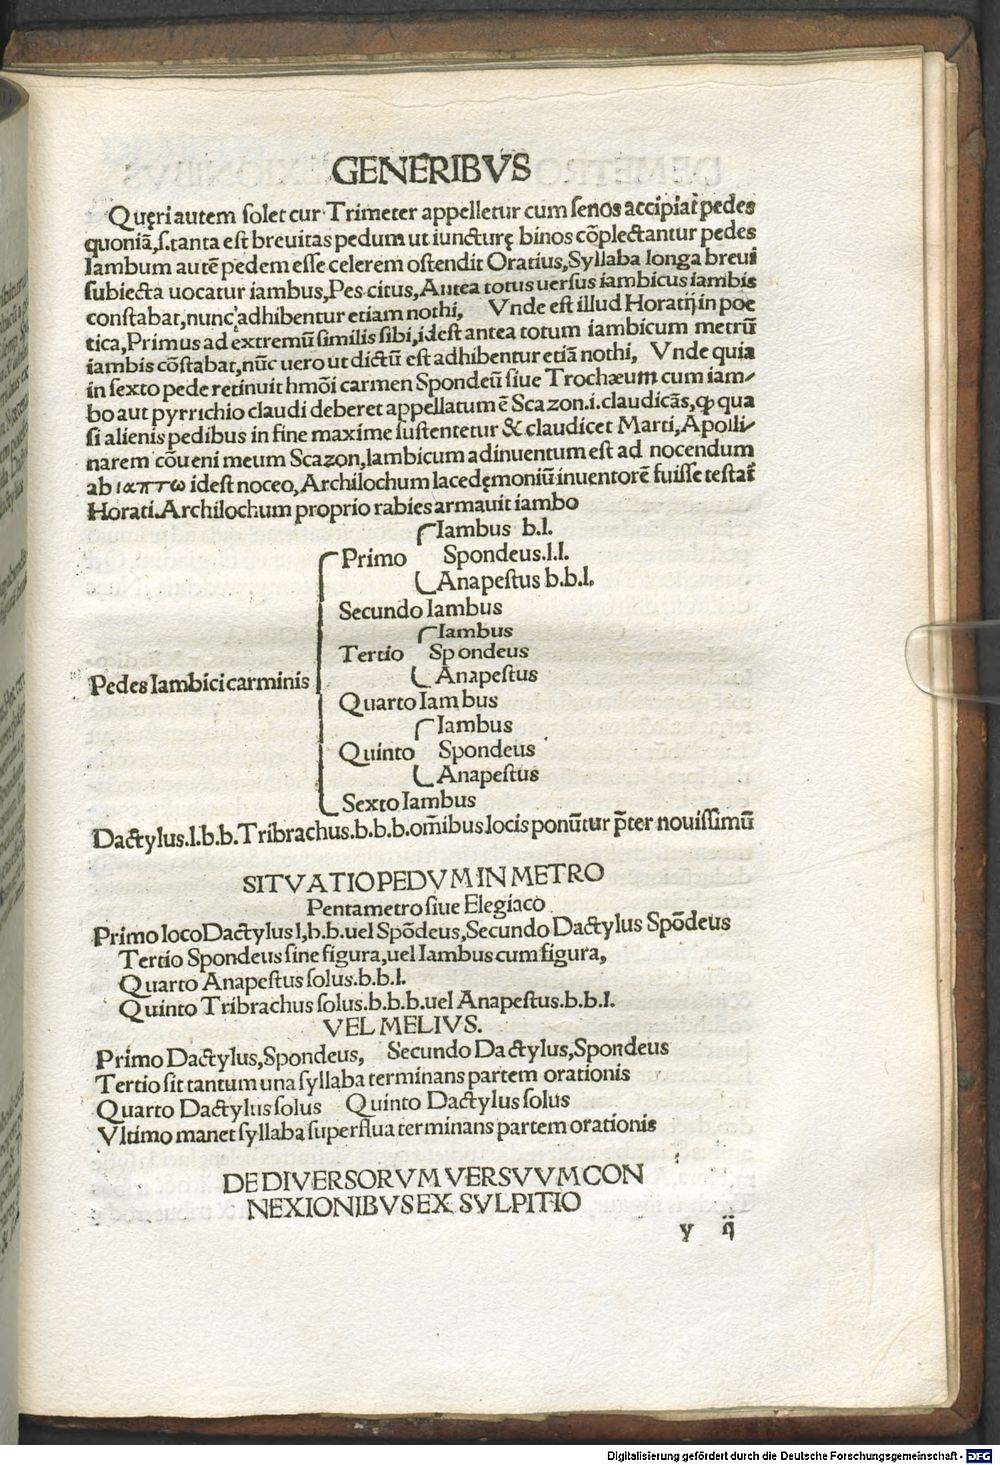 GENERIBVS
Quęri autem solet cur Trimeter appelletur cum senos accipiat̃ pedes
quoniã, s. tanta est breuitas pedum ut iuncturę binos cõplectantur pedes
Iambum autẽ pedem esse celerem ostendit Oratius, Syllaba longa breui
subiecta uocatur iambus, Pes citus, Antea totus uersus iambicus iambis
constabat, nunc adhibentur etiam nothi, Vnde est illud Horatij in poe
tica, Primus ad extremũ similis sibi, idest antea totum iambicum metrũ
iambis cõstabat, nũc uero ut dictũ est adhibentur etiã nothi, Vnde quia
in sexto pede retinuit hmõi carmen Spondeũ siue Trochæum cum iam⸗
bo aut pyrrichio claudi deberet appellatum ẽ Scazon .i. claudicãs, ꝙ qua
si alienis pedibus in fine maxime sustentetur & claudicet Marti, Apolli⸗
narem cõueni meum Scazon, Iambicum adinuentum est ad nocendum
ab ιαπτω idest noceo, Archilochum lacedęmoniũ inuentorẽ fuisse testat̃
Horati. Archilochum proprio rabies armauit iambo
Iambus b.l.
Primo Spondeus.l.l.
Anapestus b.b.l.
Secundo Iambus
Iambus
Tertio Spondeus
Anapestus
Pedes Iambici carminis
Quarto Iambus
Iambus
Quinto Spondeus
Anapestus
Sexto Iambus
Dactylus.l.b.b. Tribrachus.b.b.b. om̃ibus locis ponũtur p̃ter nouissimũ
SITVATIO PEDVM IN METRO
Pentametro siue Elegiaco
Primo loco Dactylus l,b.b. uel Spõdeus, Secundo Dactylus Spõdeus
Tertio Spondeus sine figura, uel Iambus cum figura,
Quarto Anapestus solus.b.b.l.
Quinto Tribrachus solus.b.b.b. uel Anapestus.b.b.l.
VEL MELIVS.
Primo Dactylus, Spondeus, Secundo Dactylus, Spondeus
Tertio sit tantum una syllaba terminans partem orationis
Quarto Dactylus solus Quinto Dactylus solus
Vltimo manet syllaba superflua terminans partem orationis
DE DIVERSORVM VERSVVM CON
NEXIONIBVS EX SVLPITIO
y ij
Digitalisierung gefördert durch die Deutsche Forschungsgemeinschaft - DFG